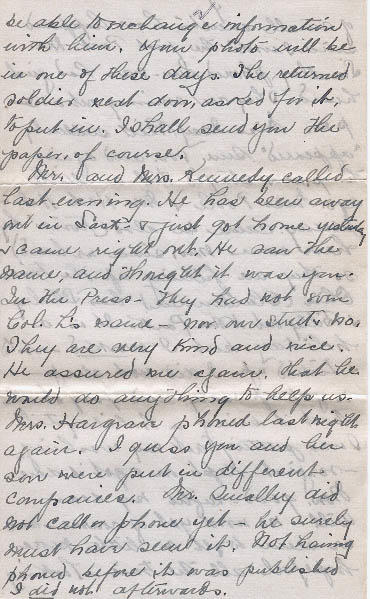 be able to exchange information
with him. Your photo will be
in one of these days. The returned
soldier next door, asked for it,
to put in. I shall send you the
paper, of course.
Mr. and Mrs. Kennedy called
last evening. He has been away
out in Sask. & just got home yesterday
& came right out. He saw the
name, and thought it was you.
In the Press - they had not
Col. L's name - nor our street & No.
They are very kind and nice.
He assured me again, that he
would do anything to help us.
Mrs. Hargrave phoned last night
again. I guess you and her
son were put in different
companies. Mr. Smalley did
not call or phone yet - he surely
must have seen it. Not having
phoned before it was published
I did not afterwards.